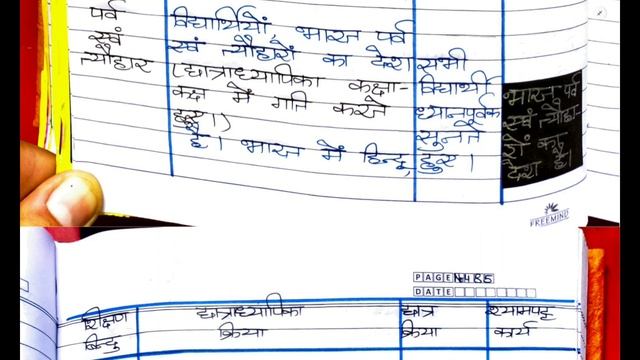 पर्व
एवं
त्यौहार
विद्यार्थियों, भारत पर्व
एवं त्यौहारों का देश
(छात्राध्यापिका कक्षा-
कक्ष में गति करते
हुए।)
है। भारत में हिन्दू,
सभी
विद्यार्थी
ध्यानपूर्वक
सुनते
हुए।
भारत पर्व
एवं त्यौहा-
रों का
देश है।
FREEMIND
PAGE
DATE
शिक्षण
बिन्दु
छात्राध्यापिका
क्रिया
छात्र
क्रिया
श्यामपट्ट
कार्य